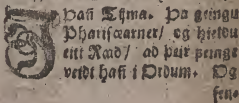 J Þañ Tijma. Þa geingu
Phariſearner/ og hielldu
eitt Ræd/ ad þeir þeinge
veidt hañ i Ordum. Og
ſen-